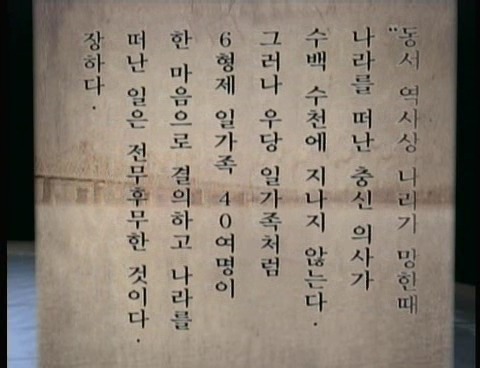 "동서 역사상 나라가 망한때
나라를 떠난 충신 의사가
수백 수천에 지나지 않는다.
그러나 우당 일가족처럼
6형제 일가족 40여명이
한 마음으로 결의하고 나라를
떠난 일은 전무후무한 것이다.
장하다.